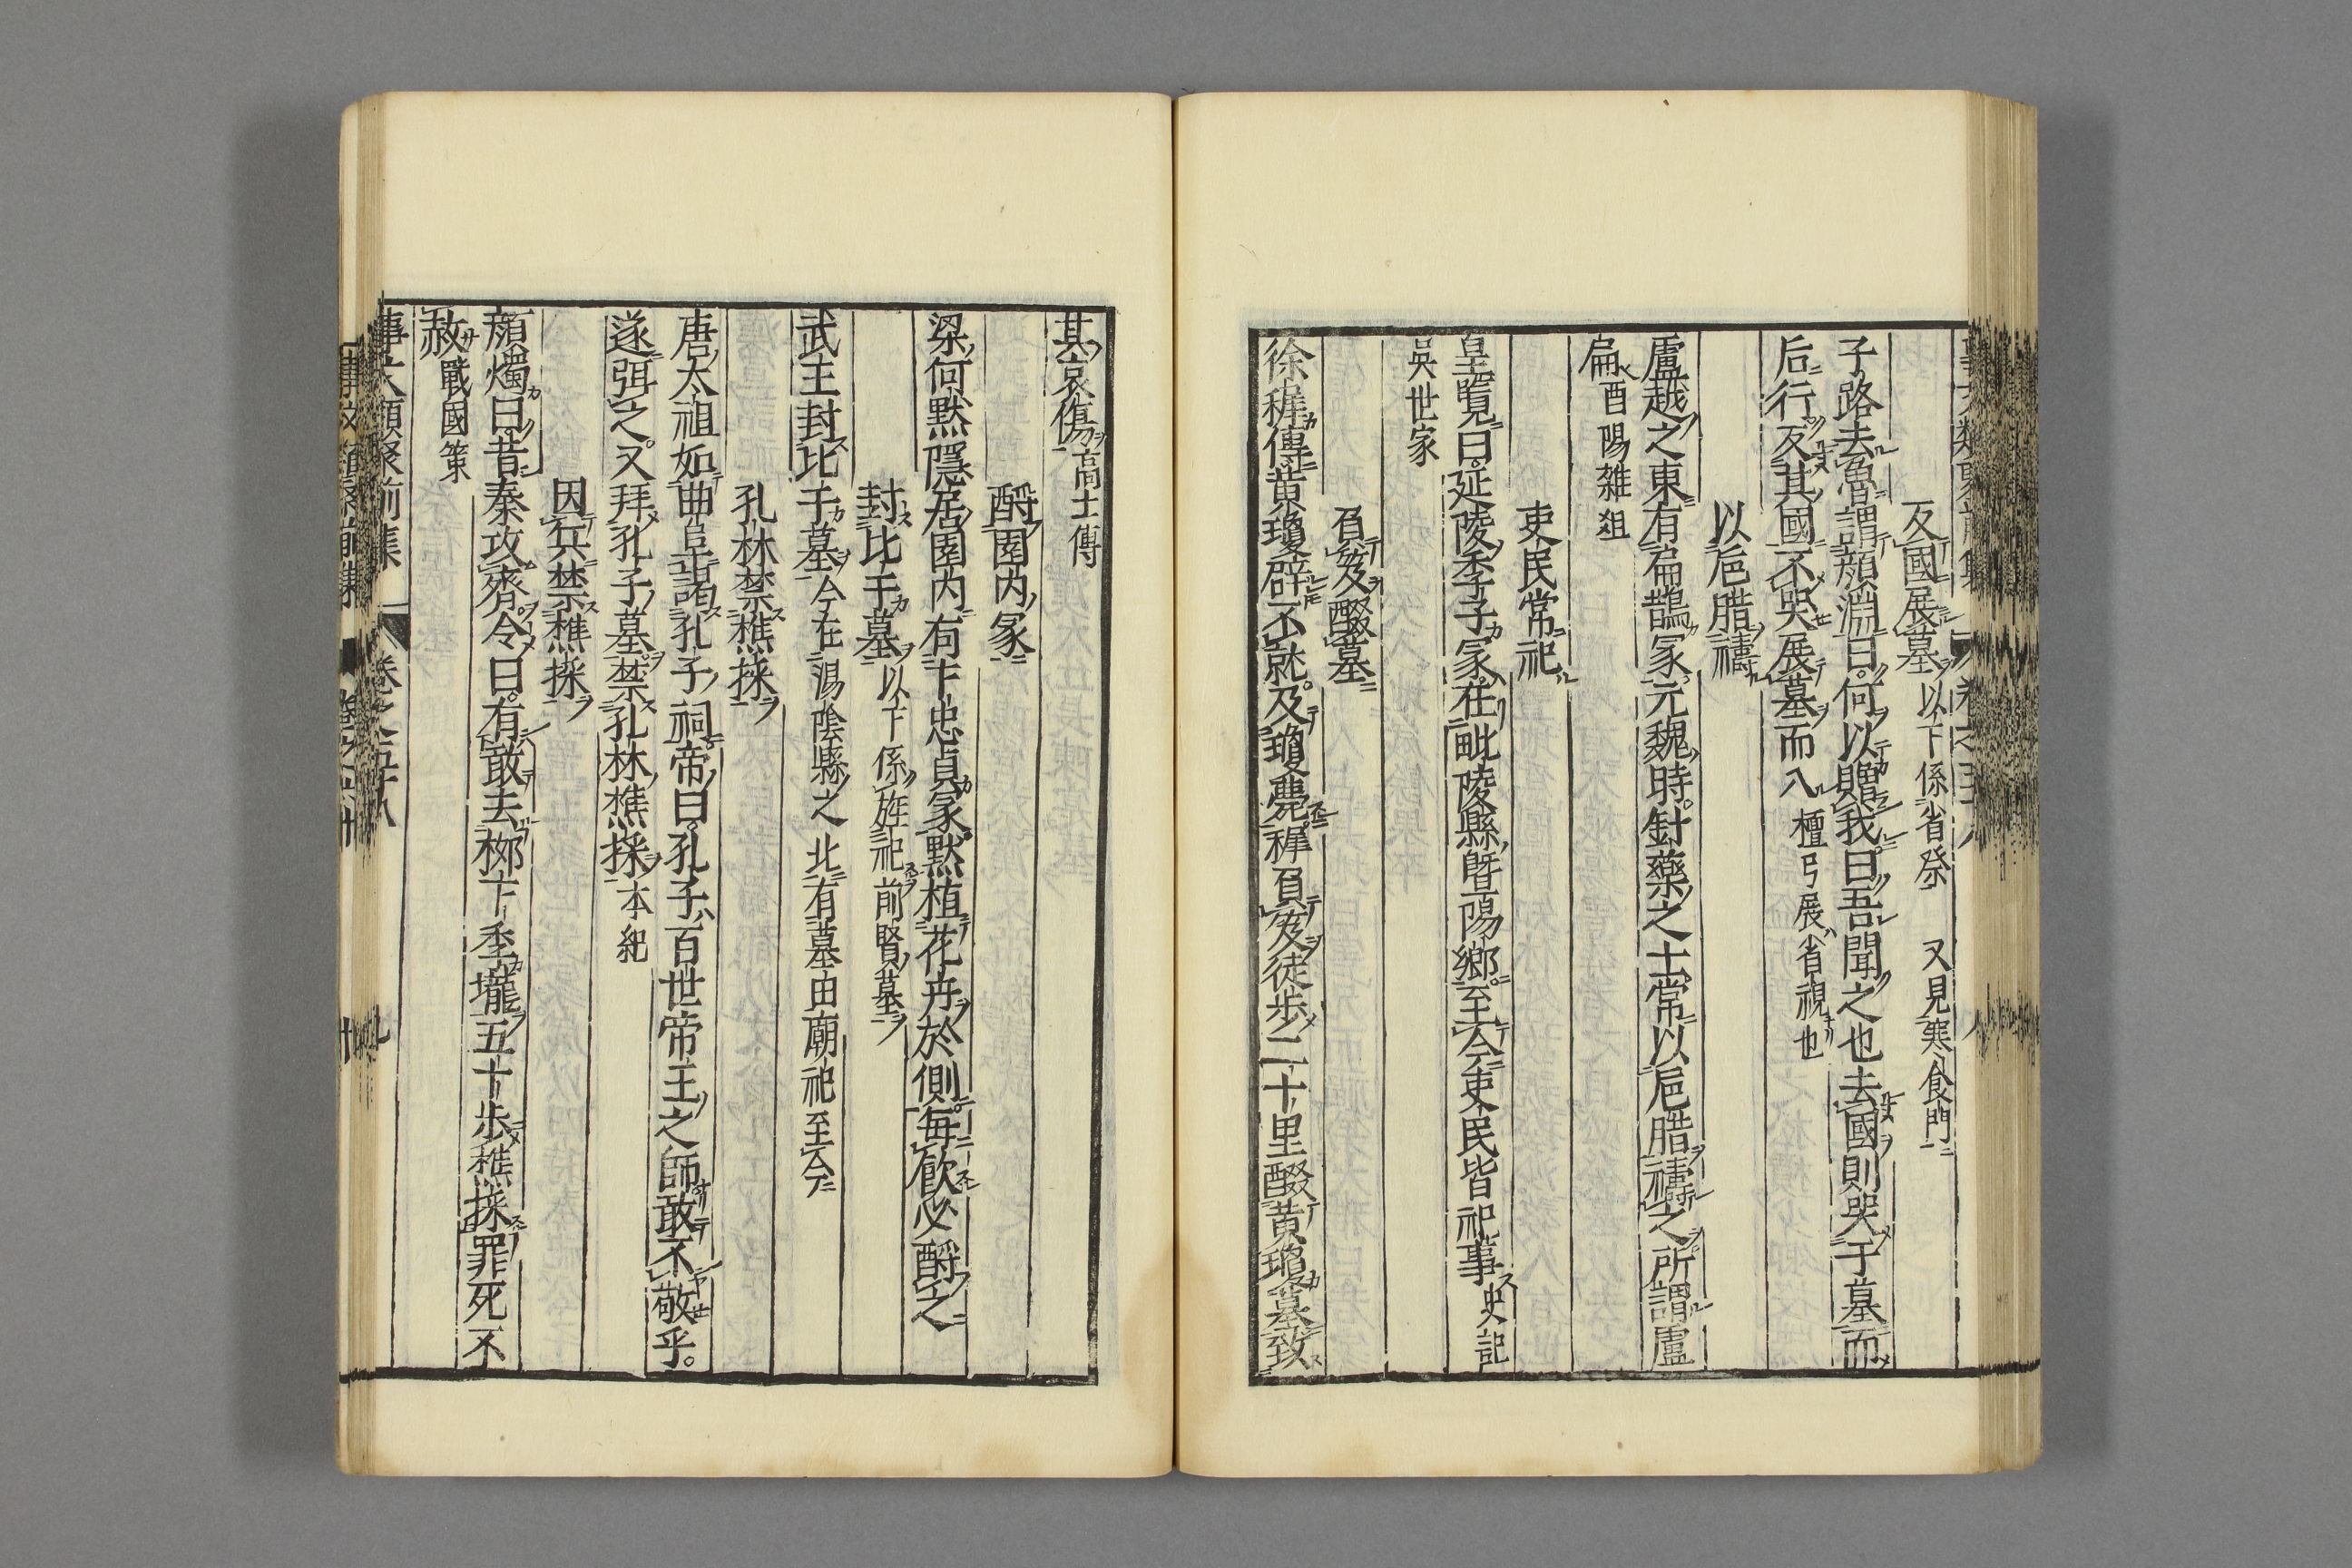 反國展墓以下係省祭 又見寒食門
子路去魯謂顏淵曰何以贈我曰吾聞之也去國則哭于墓而
后行反其國不哭展墓而入檀弓展省視也
以巵腊禱
盧越之東有扁鵲冢元魏時針藥之士常以巵腊禱之所謂盧
扁酉陽雜俎
吏民常祀
皇覽曰延陵季子冢在毗陵縣曁陽鄉至今吏民皆祀事史記
吳世家
負笈醊墓
徐穉傳黃瓊辟不就及瓊薨穉負笈徒步二十里醊黃瓊墓致
其哀傷高士傳
酹園内冢
梁何默隱居園内有卞忠貞冢默植花卉於側每飲必酹之
封比干墓以下係旌祀前賢墓
武王封比干墓今在湯陰縣之北有墓由廟祀至今
孔林禁樵採
唐太祖如曲阜謁孔子祠帝曰孔子百世帝王之師敢不敬乎
遂弭之又拜孔子墓禁孔林樵採本紀
因兵禁樵採
顏燭曰昔秦攻齊令曰有敢去栁下季壠五十步樵採罪死不
赦戰國策
事文類聚前集 卷之五十八 九